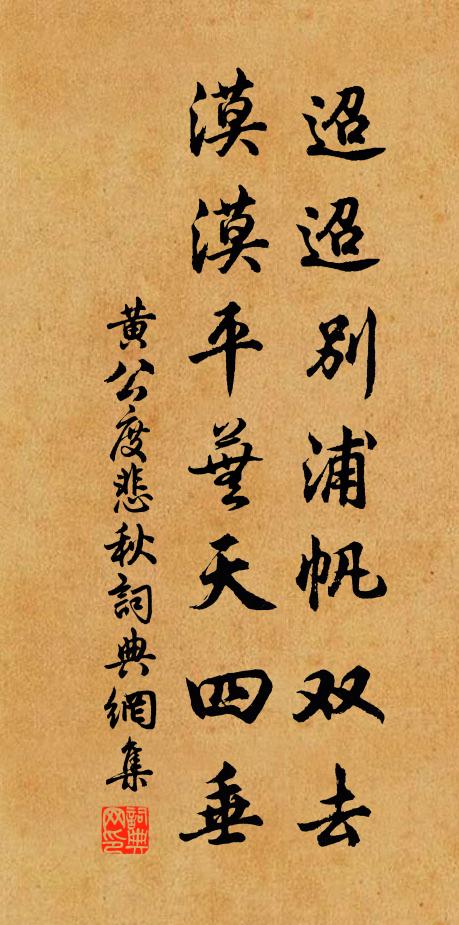 迢迢別浦帆双去
漠漠平蕪天四垂
黄公度悲秋詞典網集
詞典网印